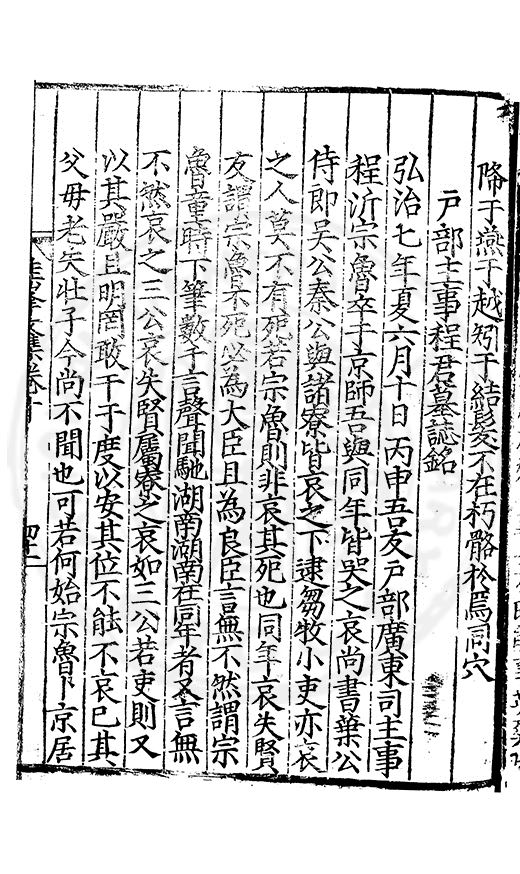 降于燕于越矧于結髮不在朽骼於焉同穴
戶部主事程君墓誌銘
弘治七年夏六月十日丙申吾友戶部廣東司主事
程沂宗魯卒于京師吾與同年皆哭之哀尚書葉公
侍郎吳公秦公與諸寮皆哀之下逮芻牧小吏亦哀
之人莫不有死若宗魯則非哀其死也同年哀失賢
友謂宗魯不死必為大臣且為良臣言無不然謂宗
魯童時下筆數千言聲聞馳湖南湖南在同年者又言無
不然哀之三公哀失賢屬寮之哀如三公若吏則又
以其嚴且明罔敢干于度以安其位不能不哀已其
父毋老矣壯子今尚不聞也可若何始宗魯卜京居
文集卷